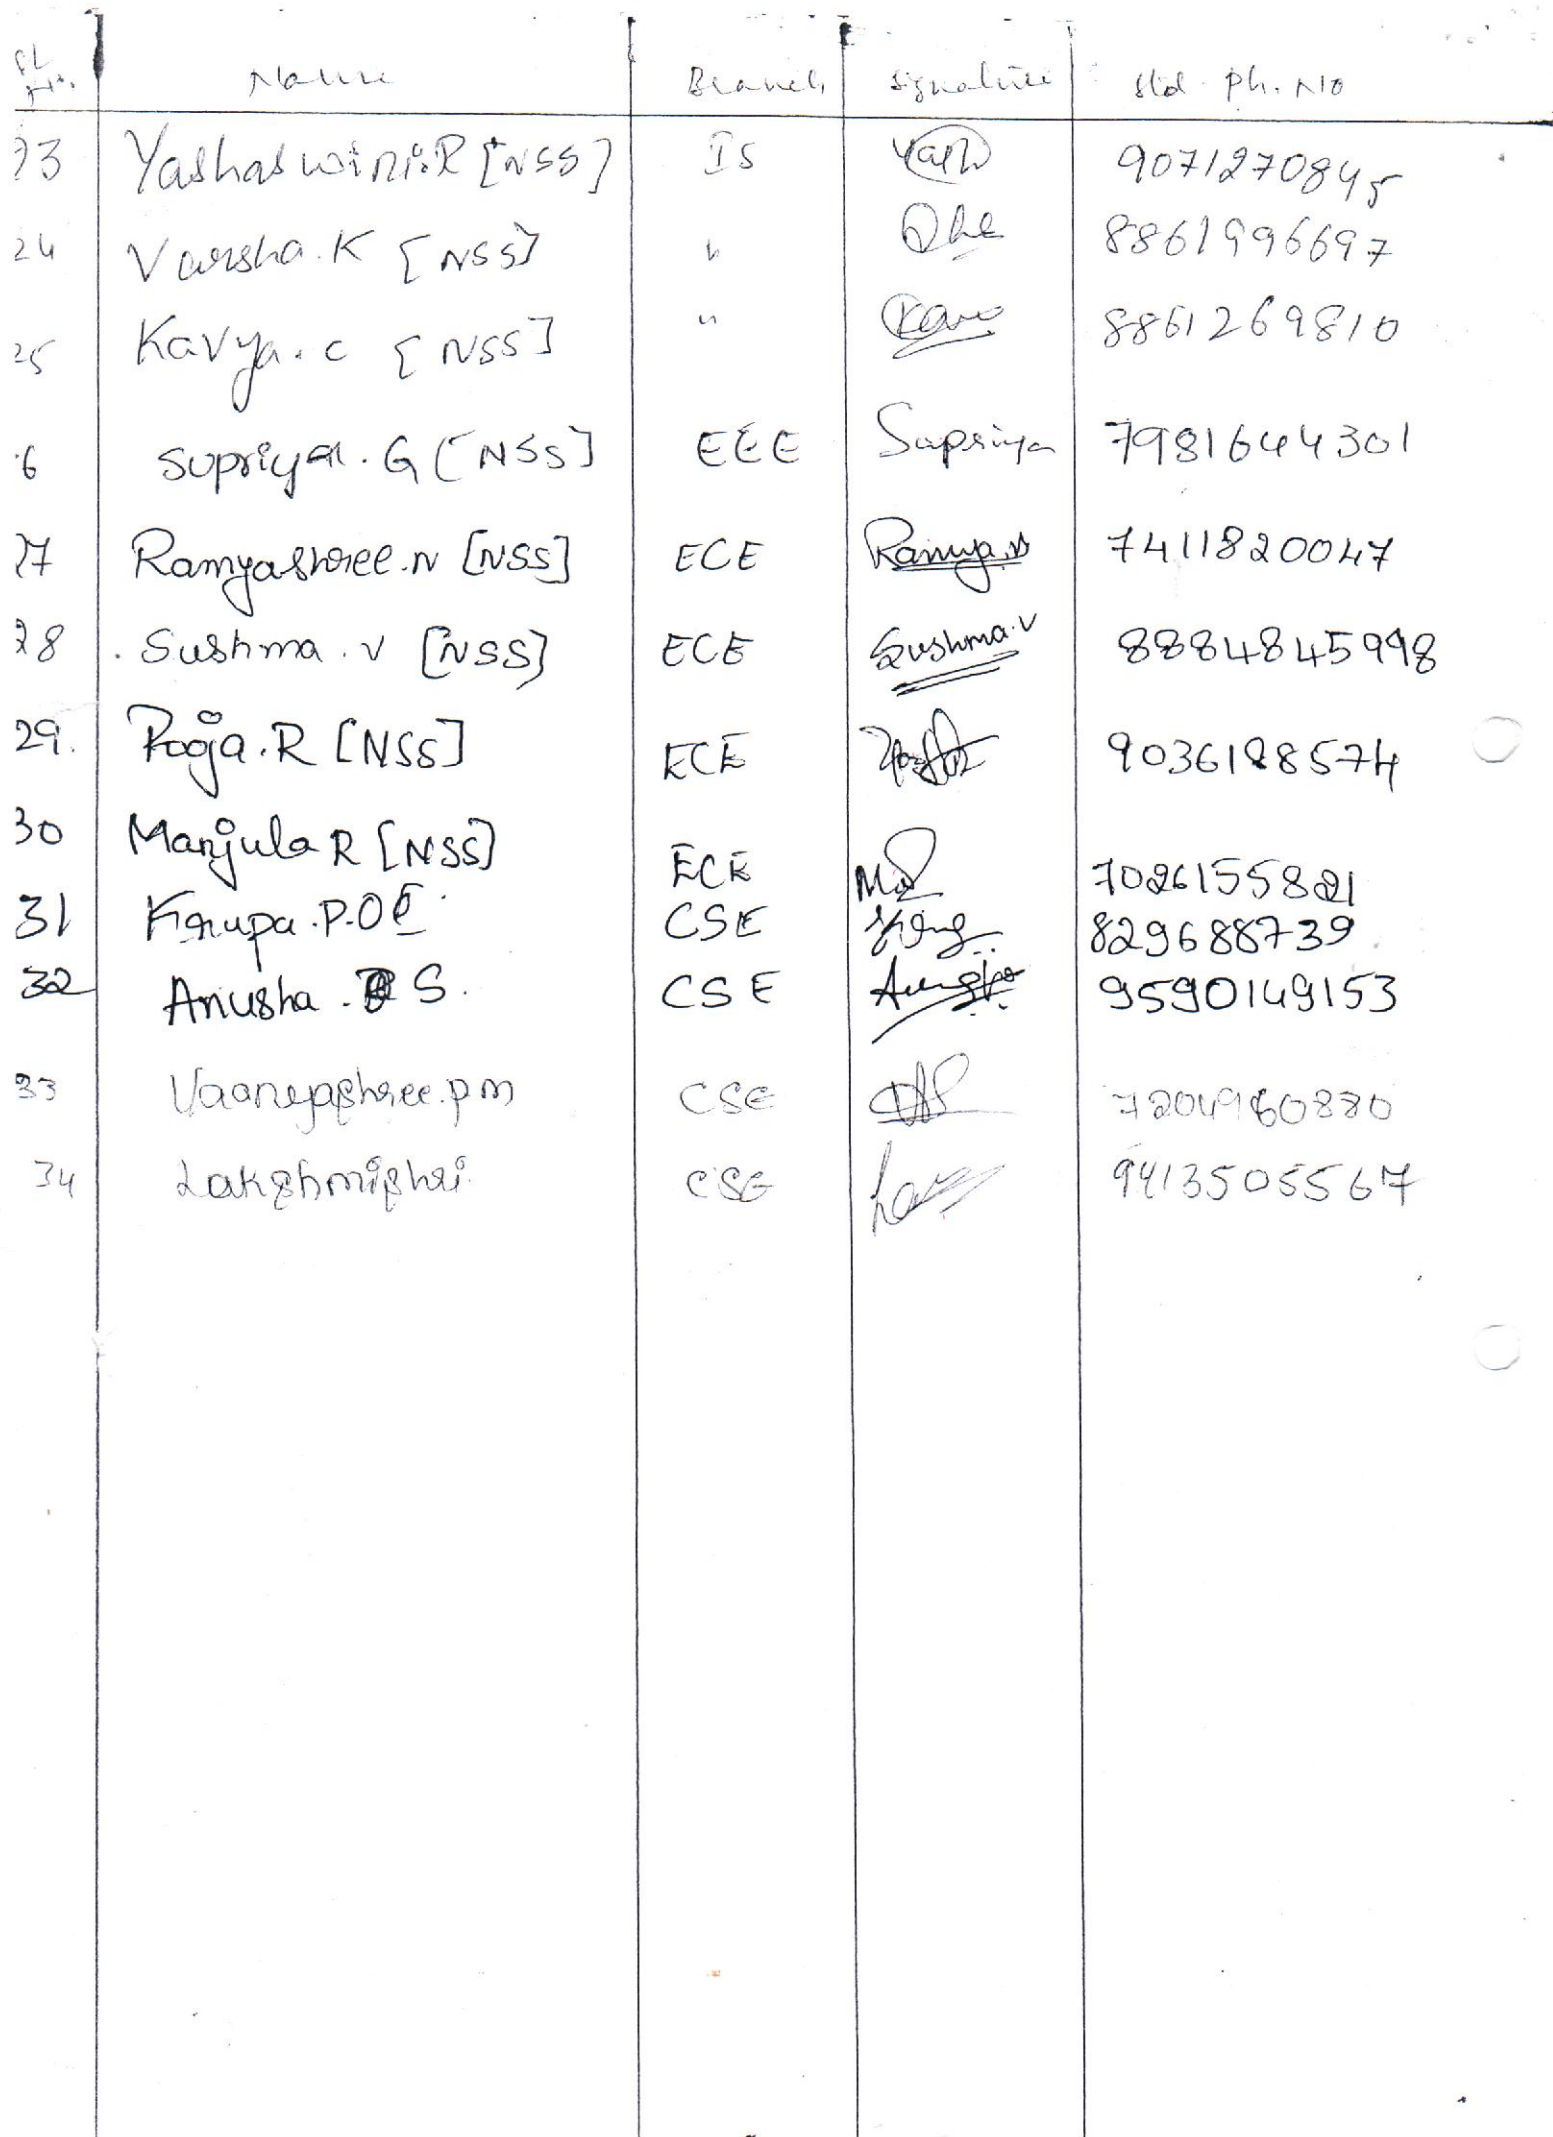 SL No. Name Branch Signature Std. Ph. No
23 Yashaswini.R [NSS] IS Yash 9071270845
24 Varsha.K [NSS] " 8861996697
25 Kavya.C [NSS] " Kavo 8861269810
6 Supriya.G [NSS] EEE Supriya 7981644301
27 Ramyashree.N [NSS] ECE Ramya.N 7411820047
28 . Sushma.V [NSS] ECE Sushma.V 8884845998
29. Roja.R [NSS] ECE 9036188574
30 Manjula R [NSS] ECE 7026155821
31 Krupa.P.O CSE 829688739
32 Anusha. S. CSE Anusha 9590149153
33 Vaanyashree.pm CSE 7204960880
34 Lakshmishri CSE 9413505567